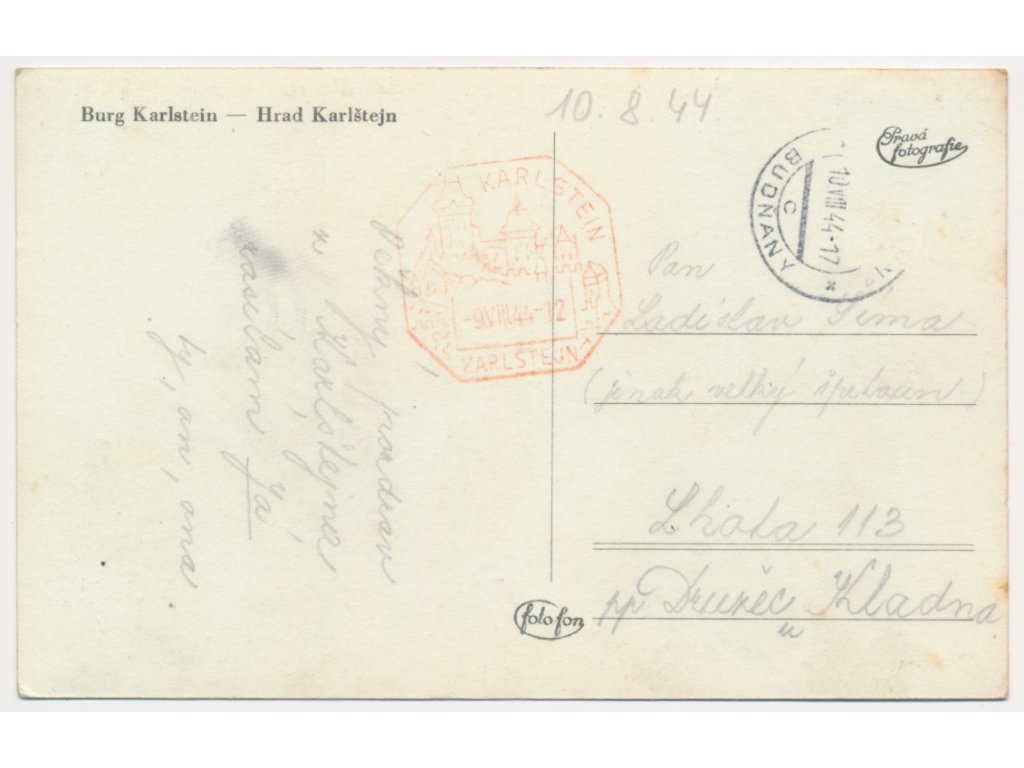 Burg Karlstein — Hrad Karlštejn
10. 8. 44.
Pravá
fotografie
BUDŇANY
C
10.VIII 44-17
*
KARLSTEIN
-9.VIII.44-12
KARLŠTEJN
Pěkný pozdrav
z Karlštejna
zasílám Já
ty, on, ona.
Pan
Ladislav Šíma
(jinak velký
Lhota 113
pp Družec u Kladna
fotofon